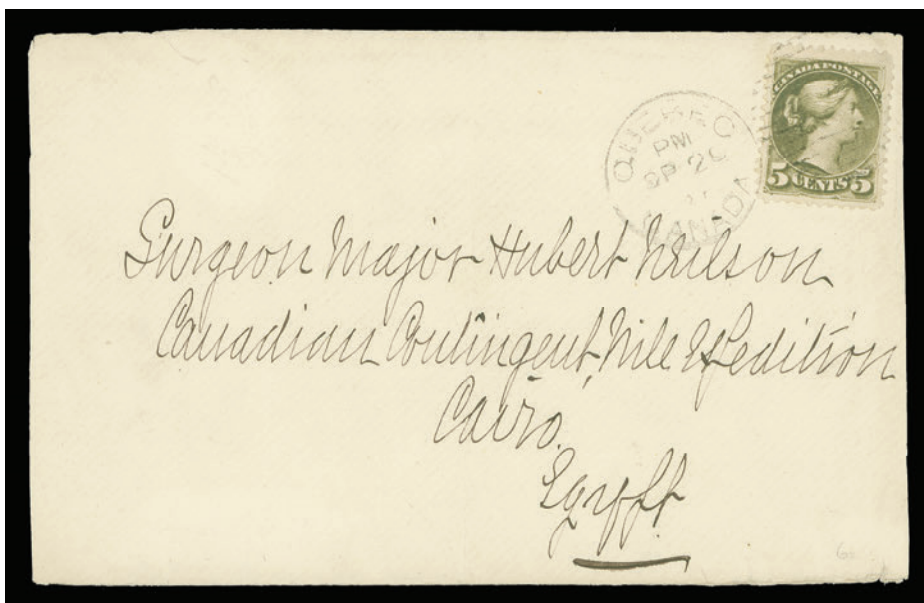 CANADA POSTAGE
5 CENTS 5
QUEBEC
PM
SP
CANADA
Surgeon Major Hubert Neilson
Canadian Contingent, Nile Expedition
Cairo.
Egypt